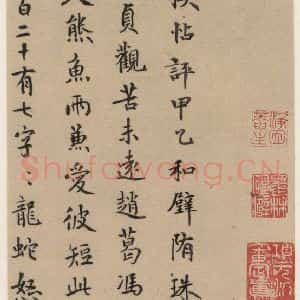 帖評甲乙和璧隋珠
貞觀苦未遠趙葛馮
熊魚兩兼愛彼短此
百二十有七字〻龍蛇怒
Shufawang.CN